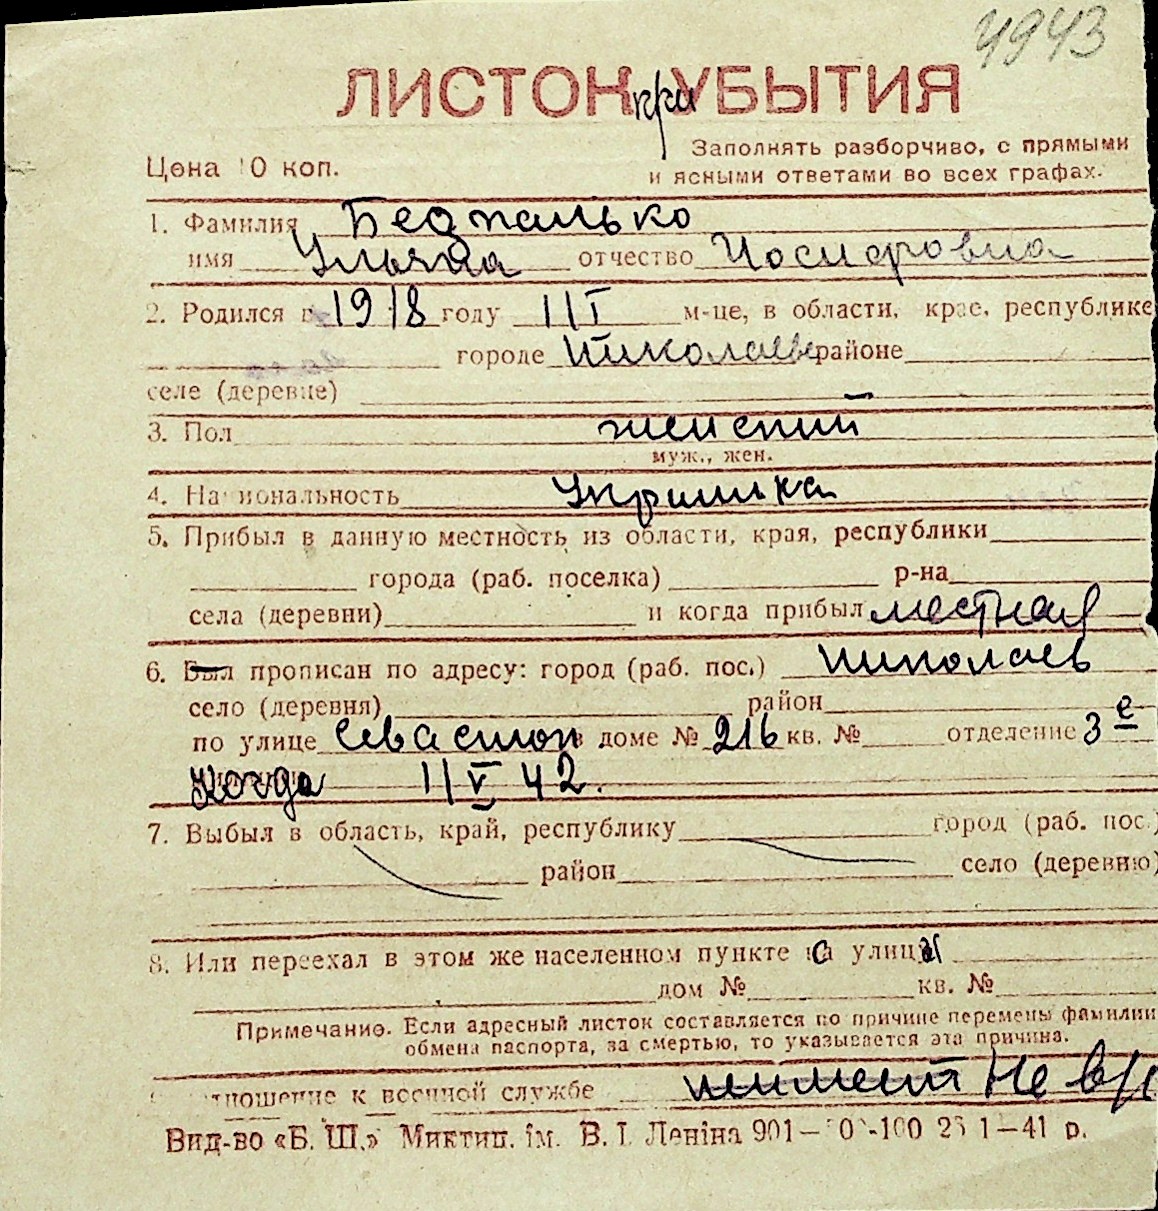 4943
ЛИСТОК при УБЫТИЯ
Заполнять разборчиво, с прямыми
Цена 10 коп.
и ясными ответами во всех графах.
1. Фамилия Бедпалько
имя Ульяна отчество Иосифовна
2. Родился в 1918 году 11 I м-це, в области, крае, республике
городе Николаеве районе
селе (деревне)
3. Пол женский
муж., жен.
4. Национальность Украинка
5. Прибыл в данную местность из области, края, республики
города (раб. поселка) р-на
села (деревни) и когда прибыл местная
6. Был прописан по адресу: город (раб. пос.) Николаев
село (деревня) район
по улице Севастоп в доме № 216 кв. № отделение 3 е
Когда 11 V 42.
7. Выбыл в область, край, республику город (раб. пос.)
район село (деревню)
8. Или переехал в этом же населенном пункте с улицы
дом № кв. №
Примечание. Если адресный листок составляется по причине перемены фамилии
обмена паспорта, за смертью, то указывается эта причина.
отношение к военной службе Не в/
Вид-во «Б. Ш.» Миктип. ім. В. І. Леніна 901— -100 2 1—41 р.